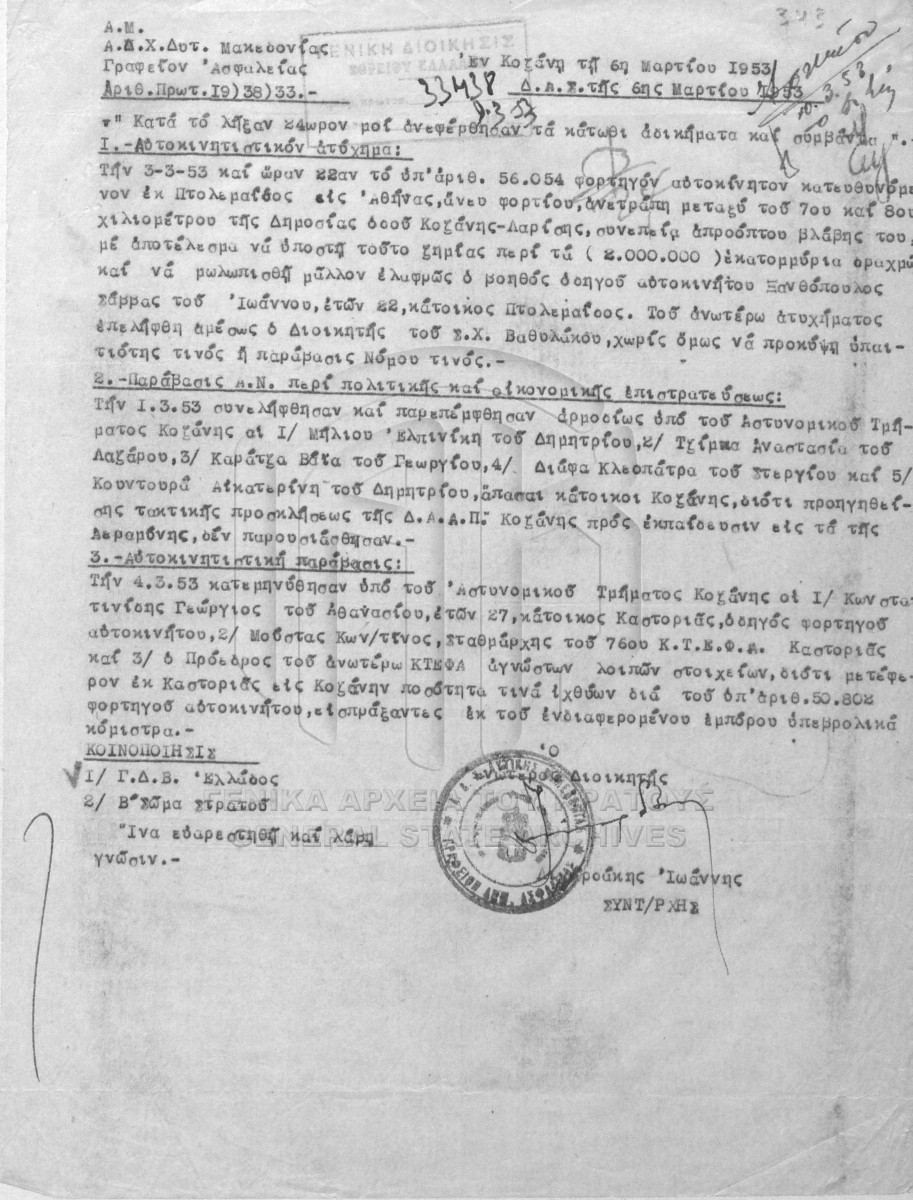 Α.Μ.
Α.Δ.Χ.Δυτ. Μακεδονίας
Γραφεῖον Ἀσφαλείας
Ἀριθ.Πρωτ.Ι9)38)33.-
ΓΕΝΙΚΗ ΔΙΟΙΚΗΣΙΣ
ΒΟΡΕΙΟΥ ΕΛΛΑΔΟΣ
33438
9.3.53
Ἐν Κοζάνῃ τῇ 6ῃ Μαρτίου Ι953
Δ.Α.Σ.τῆς 6ης Μαρτίου Ι953
" Κατά τό λῆξαν 24ωρον μοί ἀνεφέρθησαν τά κάτωθι ἀδικήματα καί σύμβάντα ".-
Ι.-Αὐτοκινητιστικόν ἀτύχημα:
Τήν 3-3-53 καί ὥραν 22αν τό ὑπ'ἀριθ. 56.054 φορτηγόν αὐτοκίνητον κατευθυνόμε
νον ἐκ Πτολεμαΐδος εἰς Ἀθήνας,ἄνευ φορτίου,ἀνετράπη μεταξύ τοῦ 7ου καί 8ου
χιλιομέτρου τῆς Δημοσίας ὁδοῦ Κοζάνης-Λαρίσης,συνεπείᾳ ἀπροόπτου βλάβης του,
μέ ἀποτέλεσμα νά ὑποστῇ τοῦτο ζημίας περί τά ( 2.000.000 )ἑκατομμύρια δραχμῶ
καί νά μωλωπισθῇ μᾶλλον ἐλαφρῶς ὁ βοηθός ὁδηγοῦ αὐτοκινήτου Ξανθόπουλος
Σάββας τοῦ Ἰωάννου,ἐτῶν 22,κάτοικος Πτολεμαΐδος. Τοῦ ἀνωτέρω ἀτυχήματος
ἐπελήφθη ἀμέσως ὁ Διοικητής τοῦ Σ.Χ. Βαθυλάκου,χωρίς ὅμως νά προκύψῃ ὑπαι-
τιότης τινός ἤ παράβασις Νόμου τινός.-
2.-Παράβασις Α.Ν. περί πολιτικῆς καί οἰκονομικῆς ἐπιστρατεύσεως:
Τήν Ι.3.53 συνελήφθησαν καί παρεπέμφθησαν ἁρμοδίως ὑπό τοῦ Ἀστυνομικοῦ Τμή-
ματος Κοζάνης αἱ Ι/ Μήλιου Ἐλπινίκη τοῦ Δημητρίου,2/ Τζίμκα Ἀναστασία τοῦ
Λαζάρου,3/ Καράτζα Βάϊα τοῦ Γεωργίου,4/ Διάφα Κλεοπάτρα τοῦ Στεργίου καί 5/
Κουντουρᾶ Αἰκατερίνη τοῦ Δημητρίου,ἅπασαι κάτοικοι Κοζάνης,διότι προηγηθεί-
σης τακτικῆς προσκλήσεως τῆς Δ.Α.Α.Π. Κοζάνης πρός ἐκπαίδευσιν εἰς τά τῆς
Ἀεραμύνης,δέν παρουσιάσθησαν.-
3.-Αὐτοκινητιστική παράβασις:
Τήν 4.3.53 κατεμηνύθησαν ὑπό τοῦ Ἀστυνομικοῦ Τμήματος Κοζάνης οἱ Ι/ Κωνστα
τινίδης Γεώργιος τοῦ Ἀθανασίου,ἐτῶν 27,κάτοικος Καστοριᾶς,ὁδηγός φορτηγοῦ
αὐτοκινήτου,2/ Μούστας Κων/τῖνος,Σταθμάρχης τοῦ 76ου Κ.Τ.Ε.Φ.Α. Καστοριᾶς
καί 3/ ὁ Πρόεδρος τοῦ ἀνωτέρω ΚΤΕΦΑ ἀγνώστων λοιπῶν στοιχείων,διότι μετέφε-
ρον ἐκ Καστοριᾶς εἰς Κοζάνην ποσότητά τινα ἰχθύων διά τοῦ ὑπ'ἀριθ.50.802
φορτηγοῦ αὐτοκινήτου,εἰσπράξαντες ἐκ τοῦ ἐνδιαφερομένου ἐμπόρου ὑπεβρολικά
κόμιστρα.-
ΚΟΙΝΟΠΟΙΗΣΙΣ
Ι/ Γ.Δ.Β. Ἑλλάδος
2/ Β'Σῶμα Στρατοῦ
Ἵνα εὐαρεστηθῇ καί λάβῃ
γνῶσιν.-
Ὁ
Ἀνώτερος Διοικητής
Ἰωάννης
ΣΥΝΤ/ΡΧΗΣ
ΓΕΝΙΚΑ ΑΡΧΕΙΑ ΤΟΥ ΚΡΑΤΟΥΣ
GENERAL STATE ARCHIVES